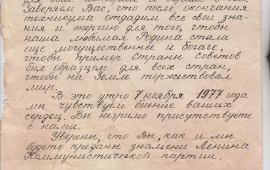 Заверяем Вас, что после окончания
техникума отдадим все свои зна-
ния и энергию для того, чтобы
наша любимая Родина стала
ещё могущественнее и богаче,
чтобы пример страны Советов
был образцом для всех стран,
чтобы на Земле торжествовал
мир.
В это утро 7 ноября 1977 года
мы чувствуем биение ваших
сердец. Вы незримо присутствуете
с нами.
Уверены, что Вы, как и мы
будете преданы знамени Ленина
Коммунистической партии.